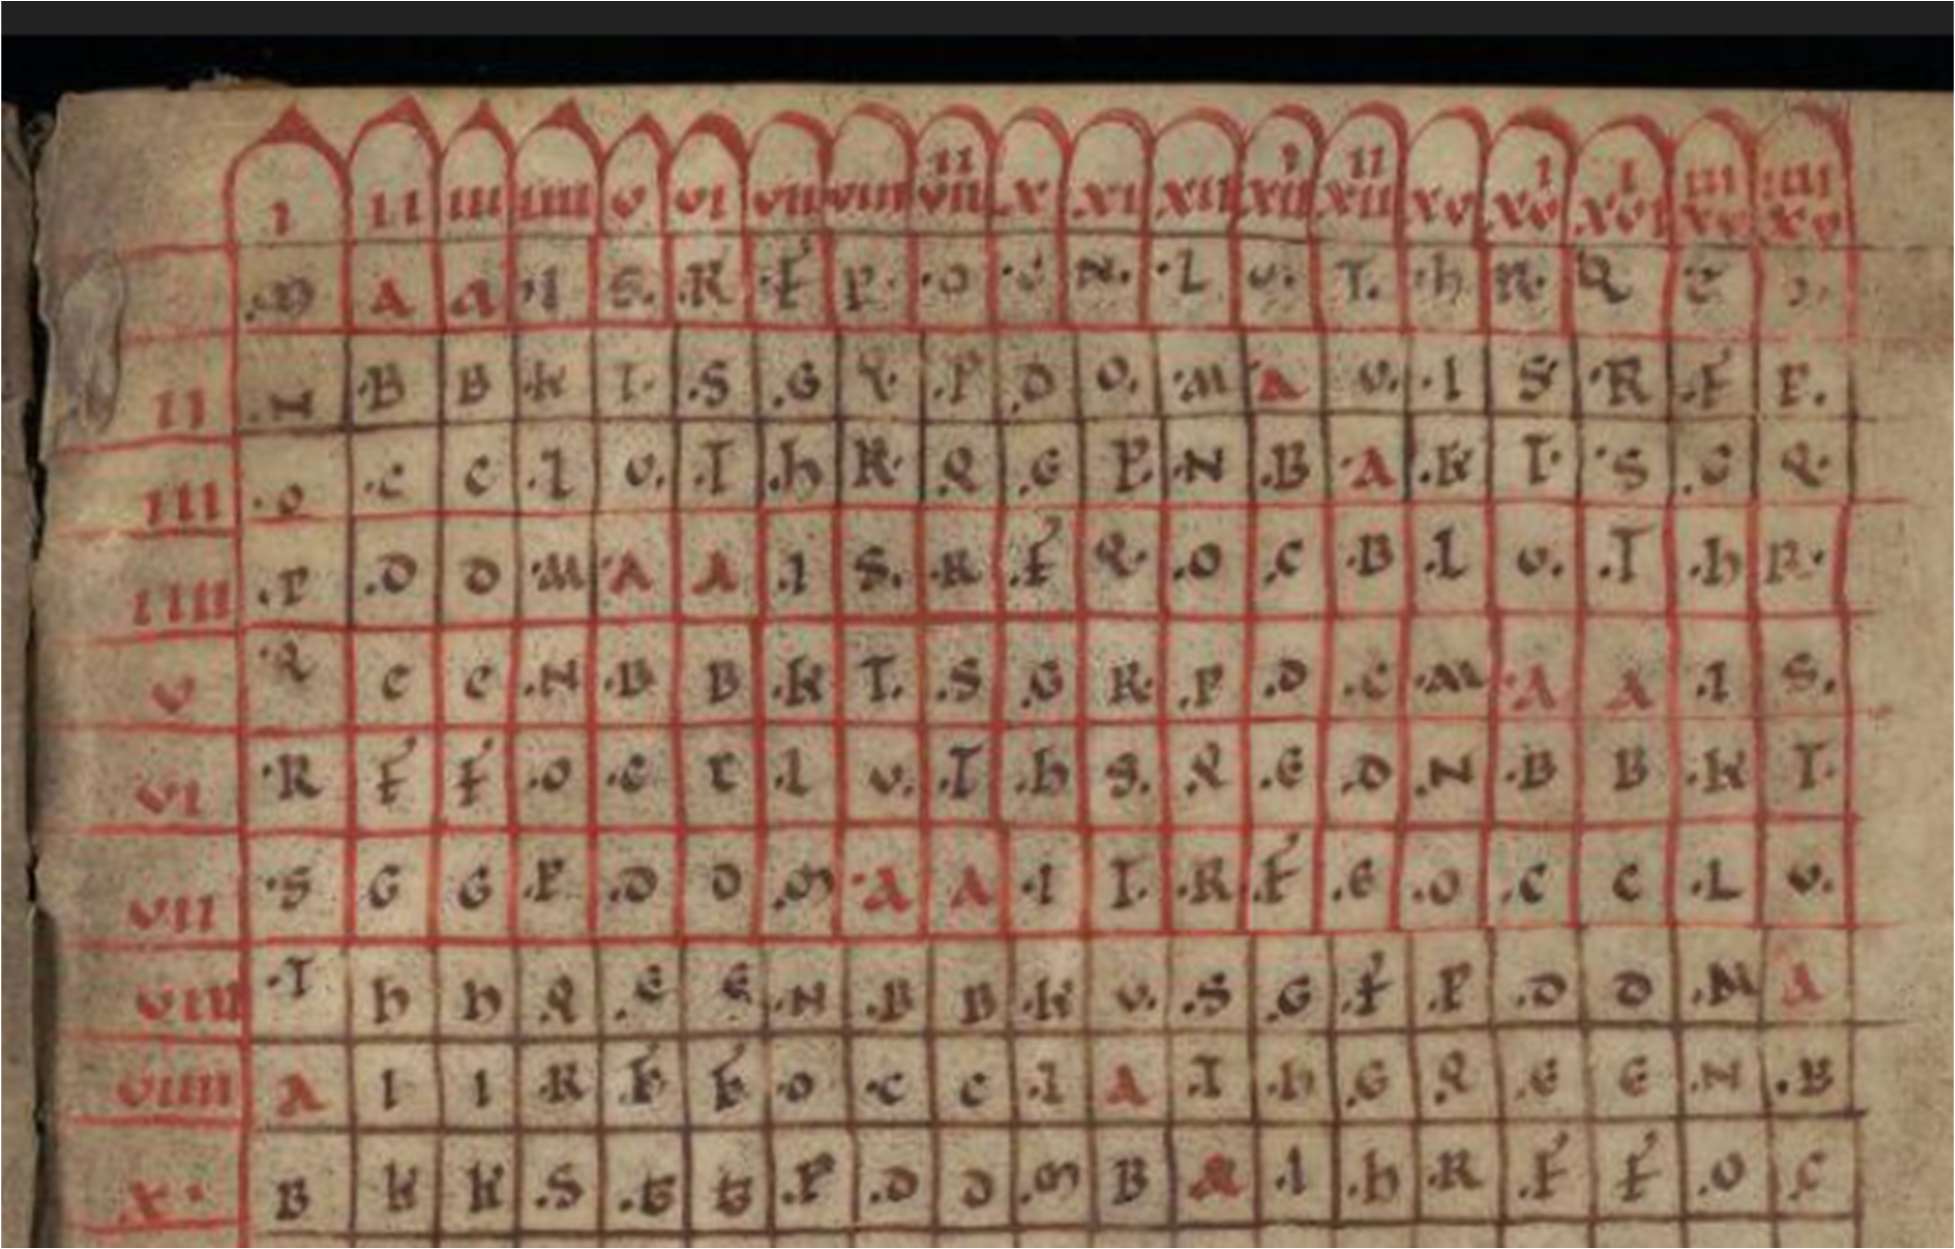 I II III IIII V VI VII VIII VII II X XI XII XII I XII II XV XV I XVI I XV III XV IIII
.M A A .I S. .R .F P. .O .C N. .L V. T. .h R. Q C
II .N .B B .K T. .S .G Q. .P .D O. .M A V. .I S .R .F P.
III .O .C C .L V. .T .h R. .Q .G P. .N .B .A .K T. .S .G Q.
IIII .P .D D .M .A A .I S. .R .F Q. .O .C .B .L V. .T .h R.
V .Q C C .N .B B .K T. .S .G R. .P .D .C .M .A A .I S.
VI .R F F .O .C C .L V. .T .h S. .Q .E .D .N .B B .K T.
VII .S G G .P .D D .M .A A .I T. .R .F .E .O .C C .L V.
VIII .T h h .Q .E E .N .B B .K V. .S .G .F .P .D D .M A
VIIII A I I .R .F F .O .C C .L A .T .h .G .Q .E E .N .B
X. B K K .S .G G .P .D D .M B A .I .h .R .F F .O .C